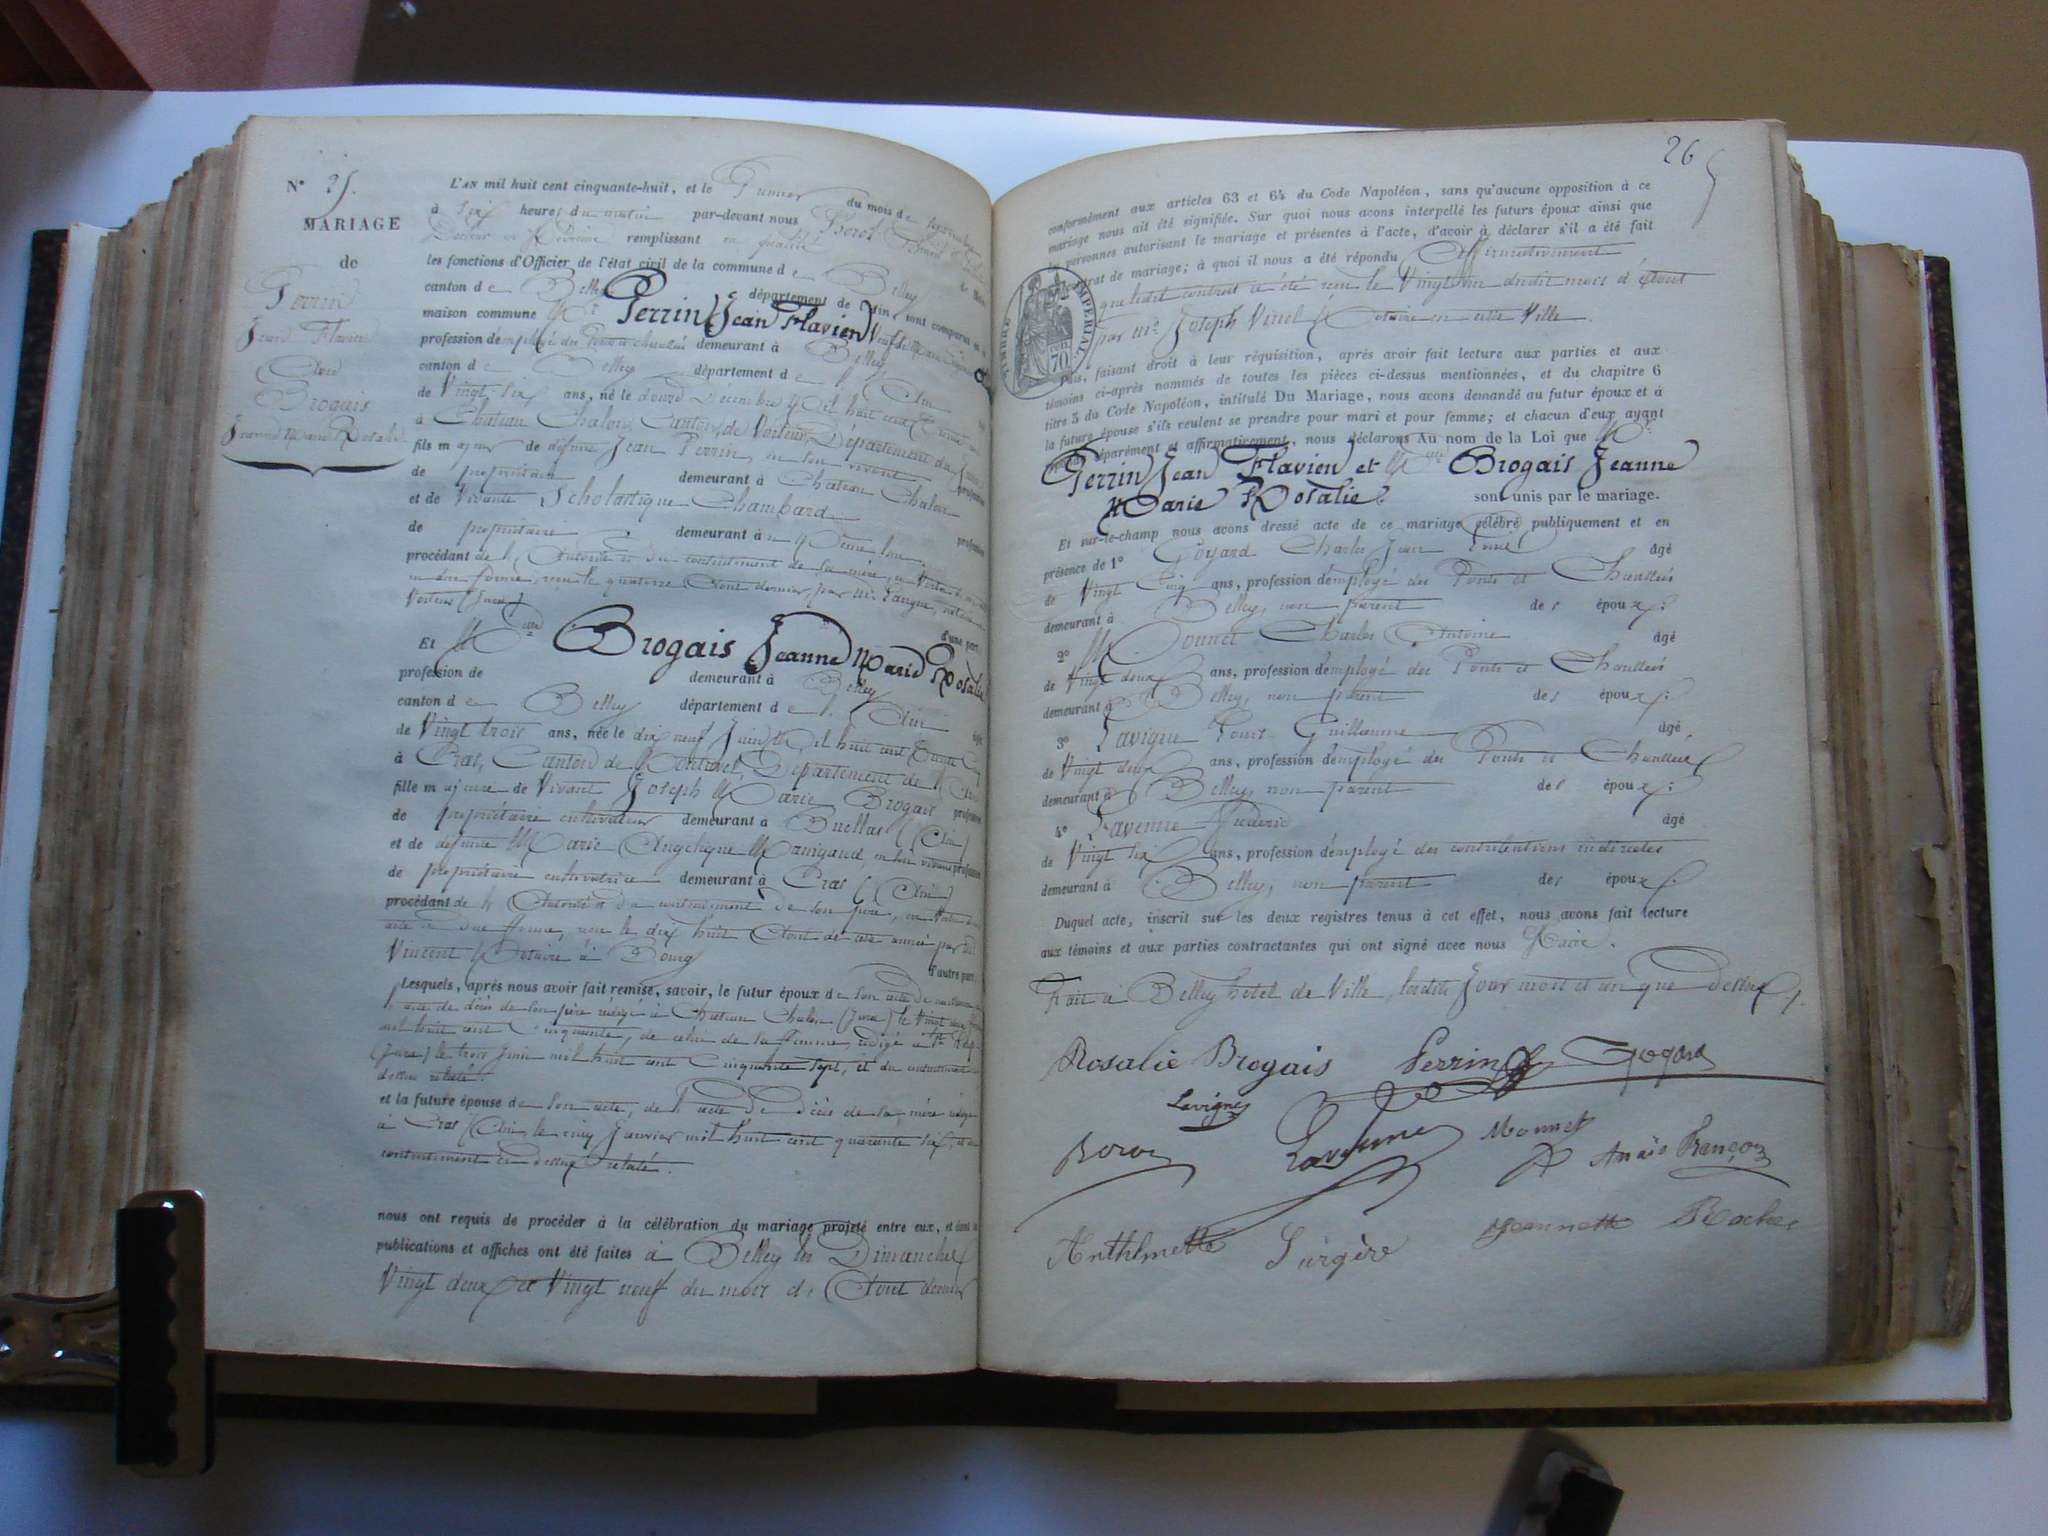 N° 25.
MARIAGE
de
Perrin
Jean Flavien
Avec
Brogais
Jeanne Marie Rosalie
L'AN mil huit cent cinquante-huit, et le Premier du mois de Septembre
à Six heures du matin par-devant nous
Docteur en Médecine remplissant en qualité de Maire
les fonctions d'Officier de l'état civil de la commune de Belley
canton de Belley département de l'Ain, sont comparus en la
maison commune Mr Perrin Jean Flavien Veuf de
profession d'employé des Ponts et chaussées demeurant à Belley
canton de Belley département de l'Ain
de Vingt six ans, né le douze Décembre Mil huit cent trente
à Chateau Chalon, Canton de Voiteur, Département du Jura
fils majeur de défunt Jean Perrin, en son vivant profession
de propriétaire demeurant à Chateau Chalon
et de Vivante Scholastique Chambard profession
de propriétaire demeurant à même lieu
procédant de l'Autorité et du consentement de sa mère, en vertu
en due forme, reçu le quatorze Aout dernier, par Me notaire
Voiteur (Jura) d'une part,
Et Melle Brogais Jeanne Marie Rosalie
profession de demeurant à Belley
canton de Belley département de l'Ain âgée
de Vingt trois ans, née le dix neuf Juin Mil huit cent Trente Cinq
à Cras, Canton de Montrevel, Département de l'Ain
fille majeure de Vivant Joseph Marie Brogais profession
de propriétaire cultivateur demeurant à Buellas (Ain)
et de défunte Marie Angélique Manigand, en son vivant profession
de propriétaire cultivatrice demeurant à Cras (Ain)
procédant de l'Autorité et du consentement de son père, en vertu
acte en due forme, reçu le dix huit Aout de cette année par Me
Vincent Notaire à Bourg d'autre part.
Lesquels, après nous avoir fait remise, savoir, le futur époux de son acte de naissance
acte de décès de son père rédigé à Chateau Chalon (Jura) le Vingt
mil huit cent Cinquante, de celui de sa femme, rédigé à
(Jura) le trois Juin mil huit cent Cinquante Sept, et du consentement
dessus relaté.
et la future épouse de son acte, de l'acte de décès de sa mère rédigé
à Cras (Ain, le cinq Janvier mil huit cent quarante six, et du
consentement ci dessus relaté.
nous ont requis de procéder à la célébration du mariage projeté entre eux, et dont les
publications et affiches ont été faites à Belley les Dimanches
Vingt deux et Vingt neuf du mois d'Aout dernier
26
conformément aux articles 63 et 64 du Code Napoléon, sans qu'aucune opposition à ce
mariage nous ait été signifiée. Sur quoi nous avons interpellé les futurs époux ainsi que
les personnes autorisant le mariage et présentes à l'acte, d'avoir à déclarer s'il a été fait
contrat de mariage; à quoi il nous a été répondu Affirmativement
que ledit contrat a été reçu le Vingt un dudit mois d'Aout
par Me Joseph Vinel Notaire en cette Ville.
TIMBRE IMPÉRIAL
70
Puis, faisant droit à leur réquisition, après avoir fait lecture aux parties et aux
témoins ci-après nommés de toutes les pièces ci-dessus mentionnées, et du chapitre 6
titre 5 du Code Napoléon, intitulé Du Mariage, nous avons demandé au futur époux et à
la future épouse s'ils veulent se prendre pour mari et pour femme; et chacun d'eux ayant
répondu séparément et affirmativement, nous déclarons Au nom de la Loi que Mr
Perrin Jean Flavien et Melle Brogais Jeanne
Marie Rosalie sont unis par le mariage.
Et sur-le-champ nous avons dressé acte de ce mariage célébré publiquement et en
présence de 1° Goyard Charles Jean Aimé âgé
de Vingt Cinq ans, profession d'employé des Ponts et Chaussées
demeurant à Belley, non parent des époux;
2° Monnet Charles Antoine âgé
de Vingt deux ans, profession d'employé des Ponts et Chaussées
demeurant à Belley, non parent des époux;
3° Lavigne Louis Guillaume âgé
de Vingt deux ans, profession d'employé des Ponts et Chaussées
demeurant à Belley, non parent des époux;
4° Lavenne Fréderic âgé
de Vingt six ans, profession d'employé des contributions indirectes
demeurant à Belley, non parent des époux.
Duquel acte, inscrit sur les deux registres tenus à cet effet, nous avons fait lecture
aux témoins et aux parties contractantes qui ont signé avec nous Maire.
Fait à Belley hotel de Ville, lesdits Jour mois et an que Dessus.
Rosalie Brogais Perrin Goyard
Lavigne
Lavenne Monnet Anaïs Françon
Anthlmette Surgère Jeannette Rochet